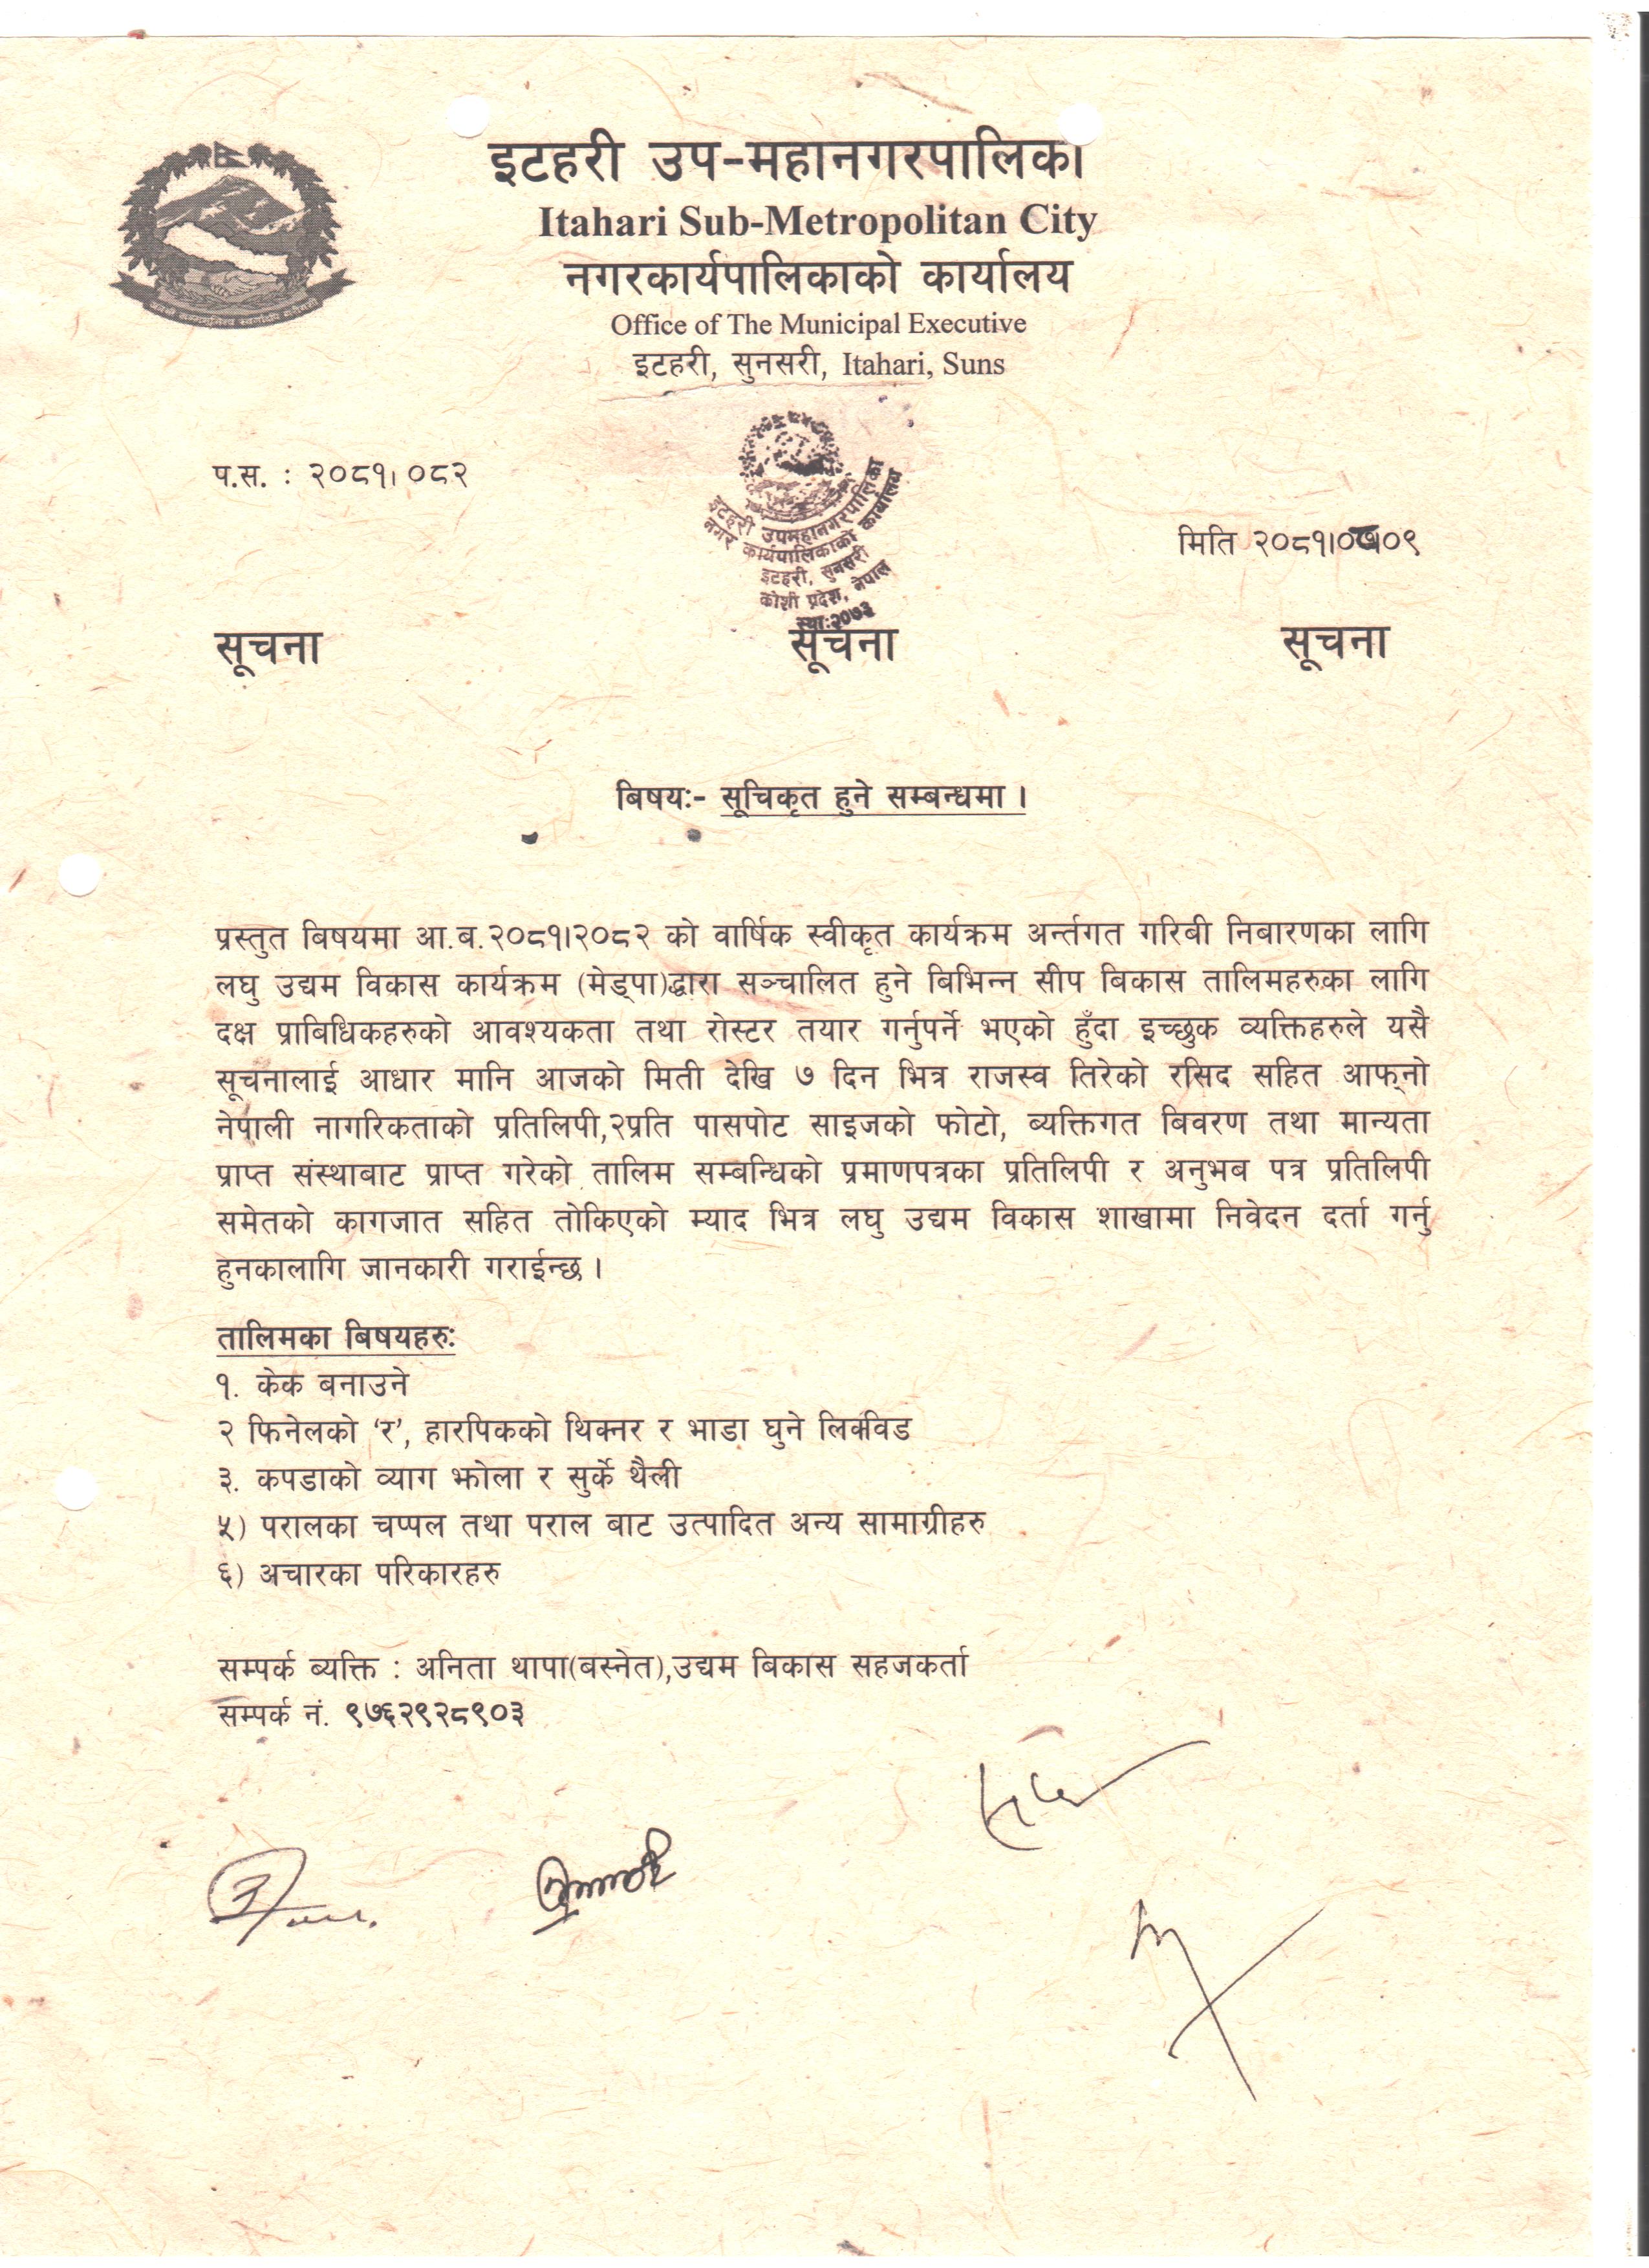 इटहरी उप-महानगरपालिका
Itahari Sub-Metropolitan City
नगरकार्यपालिकाको कार्यालय
Office of The Municipal Executive
इटहरी, सुनसरी, Itahari, Suns
प.स. : २०८१। ०८२
इटहरी उपमहानगरपालिका
नगर कार्यपालिकाको कार्यालय
इटहरी, सुनसरी
कोशी प्रदेश, नेपाल
स्था:२०७३
मिति २०८१।०८।०९
सूचना सूचना सूचना
बिषय:- सूचिकृत हुने सम्बन्धमा ।
प्रस्तुत बिषयमा आ.ब.२०८१।२०८२ को वार्षिक स्वीकृत कार्यक्रम अर्न्तगत गरिबी निबारणका लागि
लघु उद्यम विकास कार्यक्रम (मेड्पा)द्धारा सञ्चालित हुने बिभिन्न सीप बिकास तालिमहरुका लागि
दक्ष प्राबिधिकहरुको आवश्यकता तथा रोस्टर तयार गर्नुपर्ने भएको हुँदा इच्छुक व्यक्तिहरुले यसै
सूचनालाई आधार मानि आजको मिती देखि ७ दिन भित्र राजस्व तिरेको रसिद सहित आफ्नो
नेपाली नागरिकताको प्रतिलिपी,२प्रति पासपोट साइजको फोटो, ब्यक्तिगत बिवरण तथा मान्यता
प्राप्त संस्थाबाट प्राप्त गरेको तालिम सम्बन्धिको प्रमाणपत्रका प्रतिलिपी र अनुभब पत्र प्रतिलिपी
समेतको कागजात सहित तोकिएको म्याद भित्र लघु उद्यम विकास शाखामा निवेदन दर्ता गर्नु
हुनकालागि जानकारी गराईन्छ ।
तालिमका बिषयहरु:
१. केक बनाउने
२ फिनेलको ‘र’, हारपिकको थिक्नर र भाडा घुने लिक्विड
३. कपडाको व्याग झोला र सुर्के थैली
५) परालका चप्पल तथा पराल बाट उत्पादित अन्य सामाग्रीहरु
६) अचारका परिकारहरु
सम्पर्क ब्यक्ति : अनिता थापा(बस्नेत),उद्यम बिकास सहजकर्ता
सम्पर्क नं. ९७६२९२८९०३